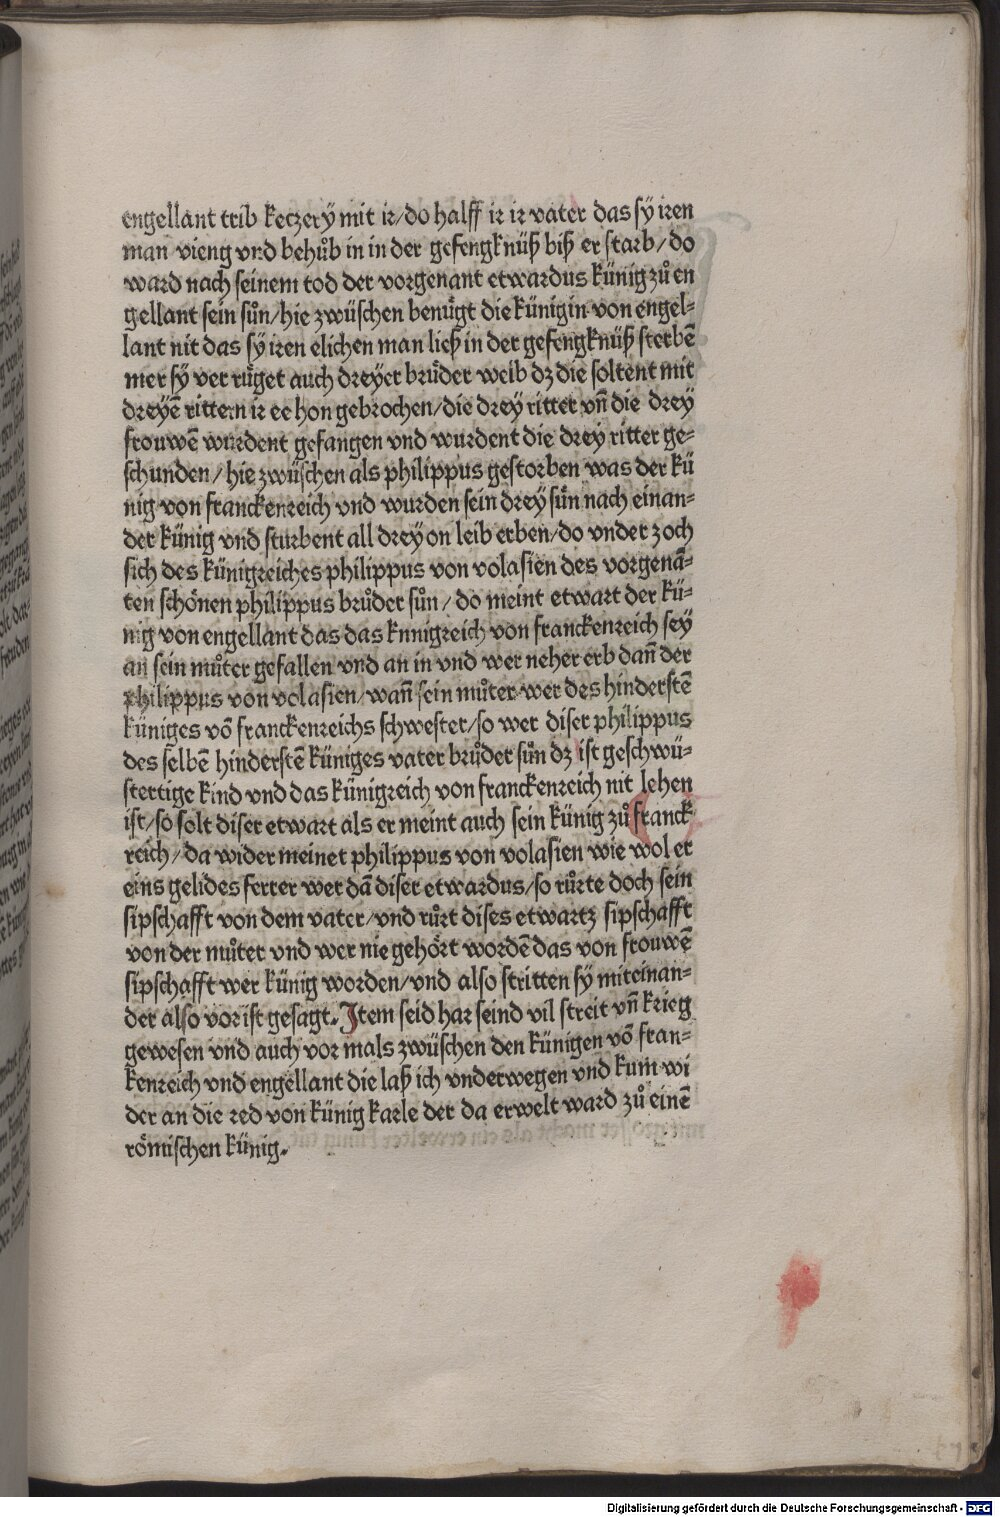 engellant trib keczery mit ir/do halff ir ir vater das sÿ iren
man vieng vnd behůb in in der gefengknüß biß er starb/do
ward nach seinem tod der vorgenant etwardus künig zů en
gellant sein sůn/hie zwüschen benůgt die künigin von engel⸗
lant nit das sÿ iren elichen man ließ in der gefengknüß sterbē
mer sÿ ver růget auch dreyer brůder weib dz die soltent mit
dreyē rittern ir ee hon gebrochen/die drey ritter vn̄ die drey
frouwē wurdent gefangen vnd wurdent die drey ritter ge⸗
schunden/hie zwüschen als philippus gestorben was der kü
nig von franckenreich vnd wurden sein drey sün nach einan⸗
der künig vnd sturbent all drey on leib erben/do vnder zoch
sich des künigreiches philippus von volasien des vorgenā⸗
ten schönen philippus brůder sůn/do meint etwart der kü⸗
nig von engellant das das knnigreich von franckenreich sey
an sein můter gefallen vnd an in vnd wer neher erb dan̄ der
philippus von volasien/wan̄ sein můter wer des hinderstē
küniges vō franckenreichs schwester/so wer diser philippus
des selbē hinderstē küniges vater brůder sün dz ist geschwü⸗
stertige kind vnd das künigreich von franckenreich nit lehen
ist/so solt diser etwart als er meint auch sein künig zů franck
reich/da wider meinet philippus von volasien wie wol er
eins gelides ferrer wer dā diser etwardus/so růrte doch sein
sipschafft von dem vater/vnd růrt dises etwartz sipschafft
von der můter vnd wer nie gehört wordē das von frouwē
sipschafft wer künig worden/vnd also stritten sy miteinan⸗
der also vor ist gesagt. Item seid har seind vil streit vn̄ krieg
gewesen vnd auch vor mals zwüschen den künigen vō fran⸗
kenreich vnd engellant die laß ich vnderwegen vnd kum wi
der an die red von künig karle der da erwelt ward zů einē
römischen künig.
Digitalisierung gefördert durch die Deutsche Forschungsgemeinschaft - DFG